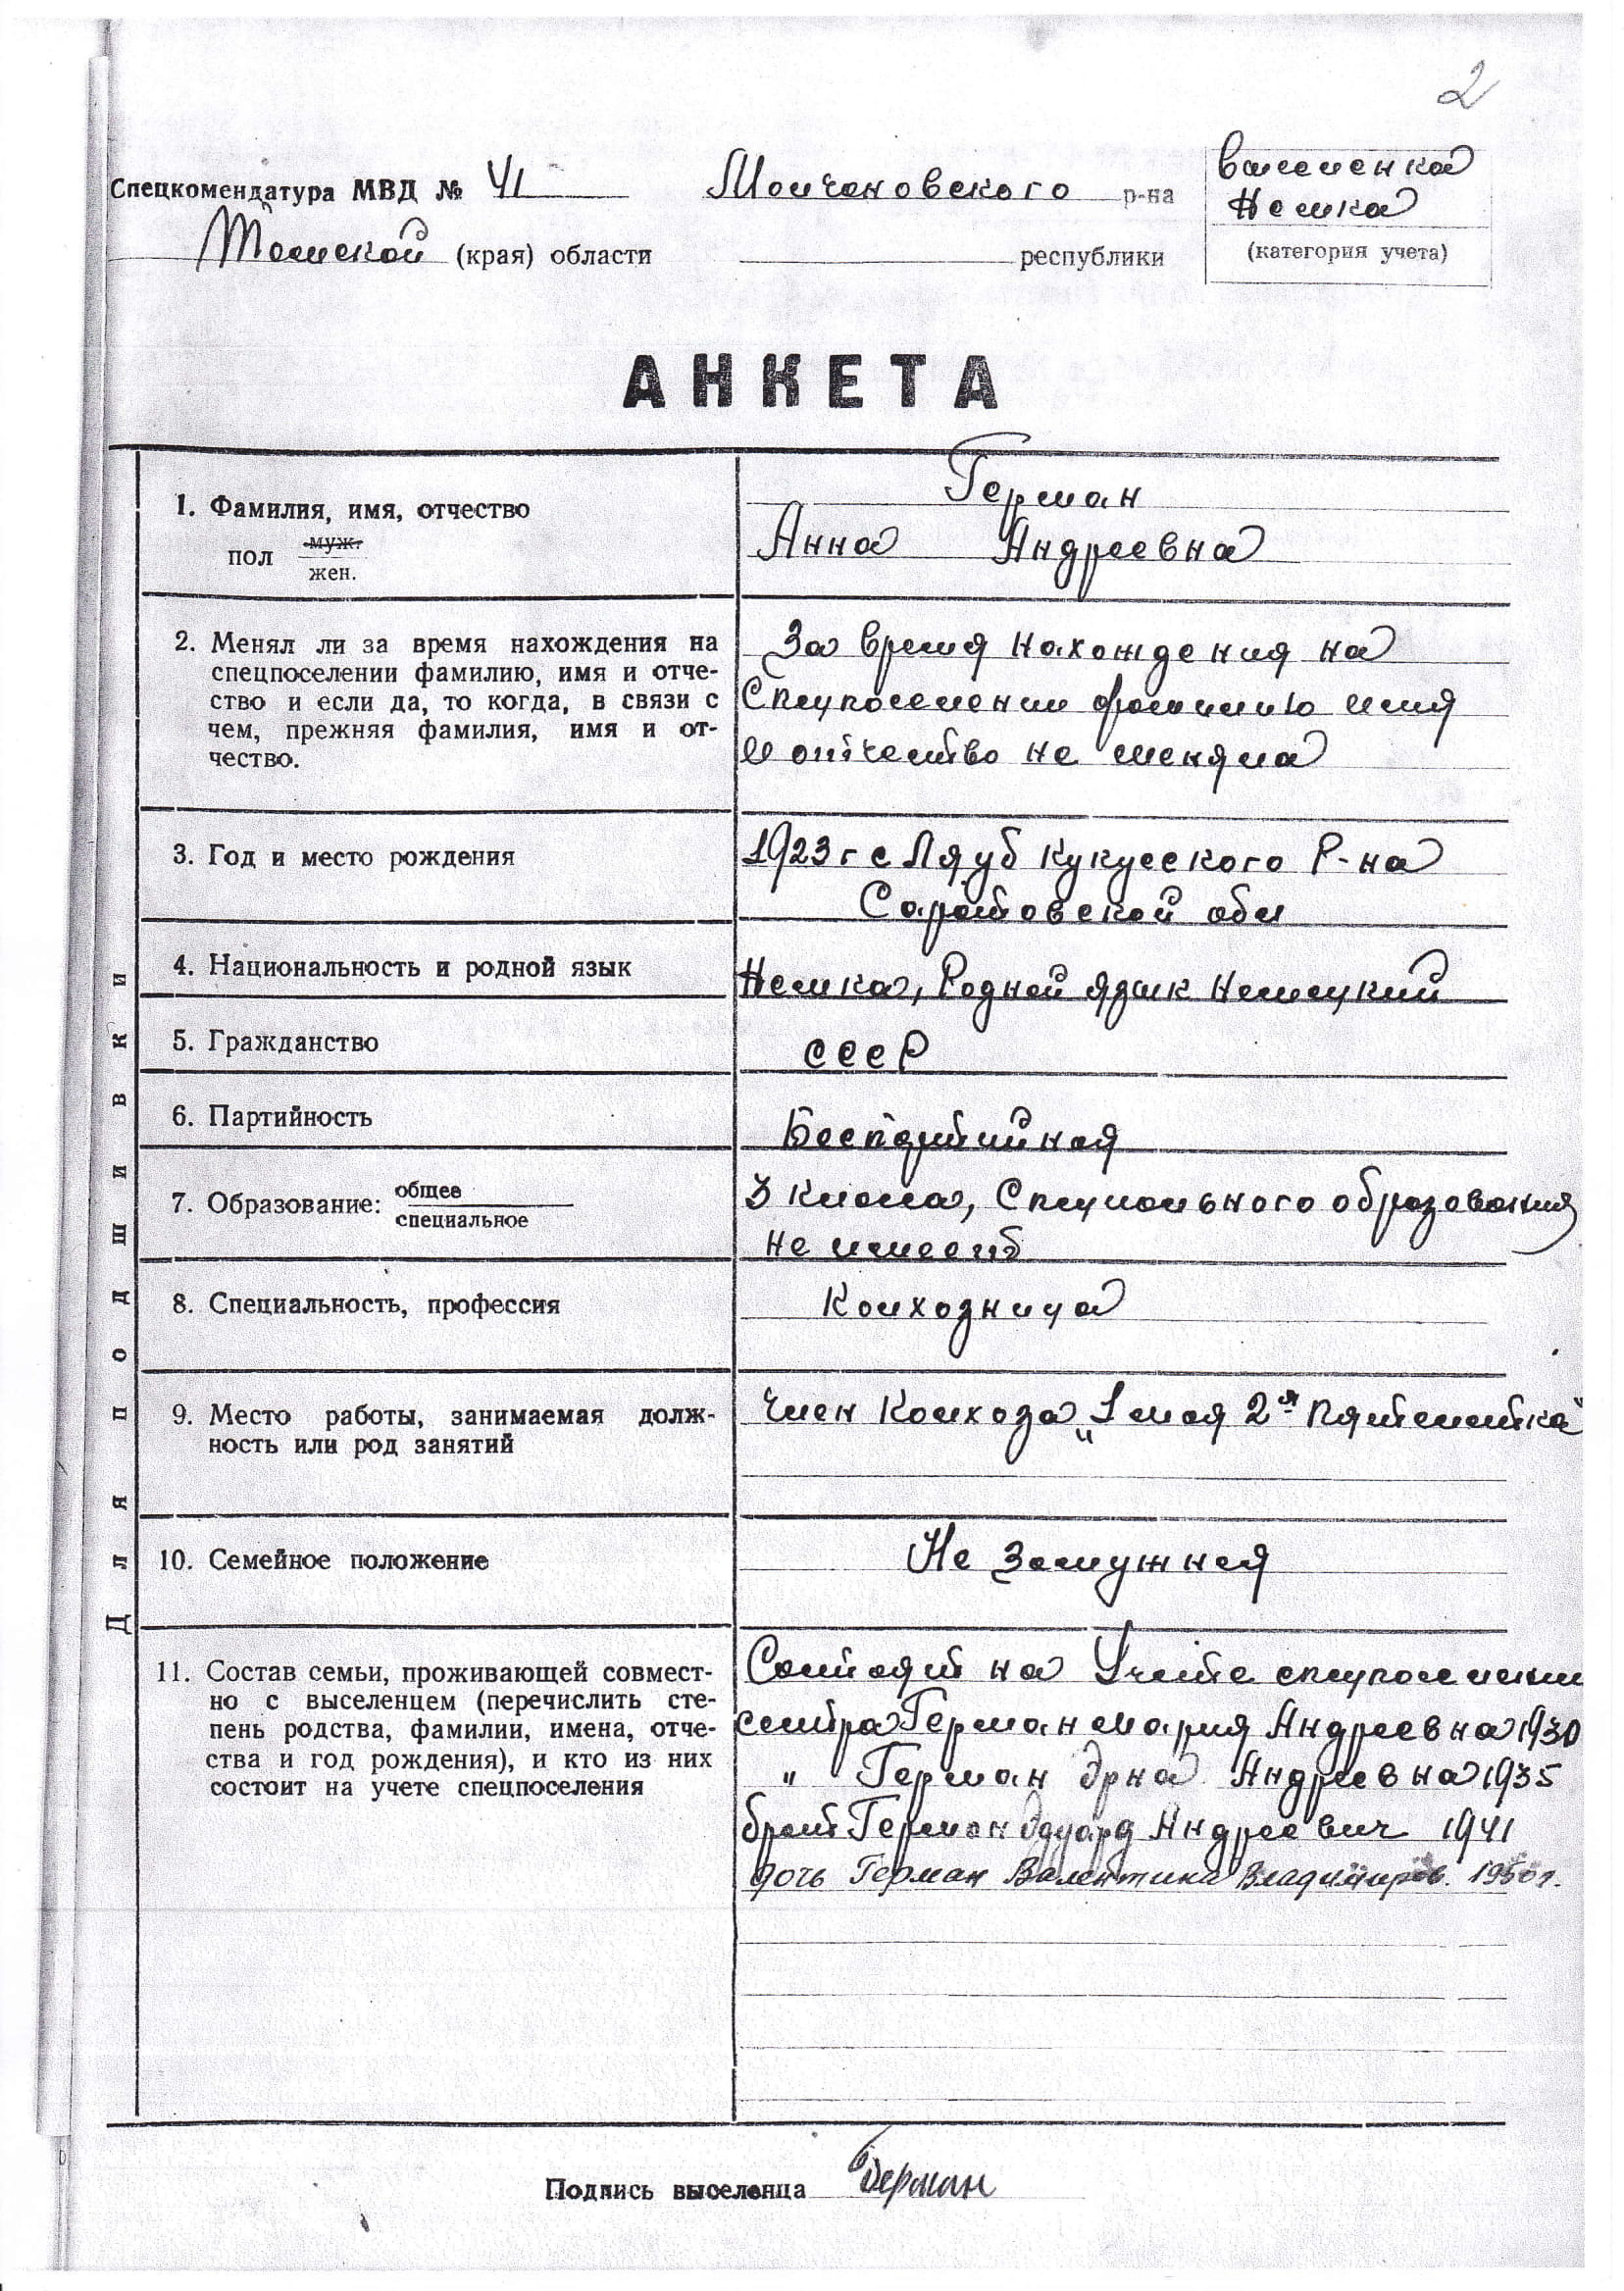 2
Спецкомендатура МВД № 41 Молчановского р-на
Томской (края) области республики
выселенка
Немка
(категория учета)
АНКЕТА
Для подшивки
1. Фамилия, имя, отчество
пол муж.
жен.
Герман
Анна Андреевна
2. Менял ли за время нахождения на
спецпоселении фамилию, имя и отче-
ство и если да, то когда, в связи с
чем, прежняя фамилия, имя и от-
чество.
За время нахождения на
Спецпоселении фамилию имя
и отчество не меняла
3. Год и место рождения
1923 г с Ляуб Кукусского Р-на
Саратовской обл
4. Национальность и родной язык
Немка, Родной язык Немецкий
5. Гражданство
СССР
6. Партийность
Беспартийная
7. Образование: общее
специальное
3 класса, Специального образования
не имеет
8. Специальность, профессия
Колхозница
9. Место работы, занимаемая долж-
ность или род занятий
Член Колхоза „1 мая 2я пятилетка"
10. Семейное положение
Не Замужняя
11. Состав семьи, проживающей совмест-
но с выселенцем (перечислить сте-
пень родства, фамилии, имена, отче-
ства и год рождения), и кто из них
состоит на учете спецпоселения
Состоят на Учете спецпоселении
сестра Герман Мария Андреевна 1930
" Герман Эрна Андреевна 1935
брат Герман Эдуард Андреевич 1941
дочь Герман Валентина Владимиров. 1950 г.
Подпись выселенца Герман